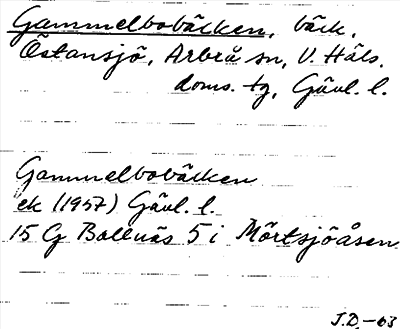 Gammelbobäcken, bäck,
Östansjö, Arbrå sn, V. Häls.
doms. tg, Gävl. l.
Gammelbobäcken
ek (1957) Gävl. l.
15 G Bollnäs 5 i Mörtsjöåsen
J.D.-63